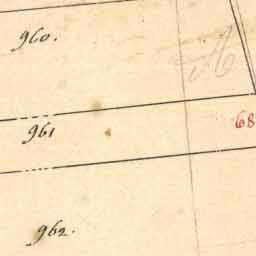 960.
A
68
961
962.